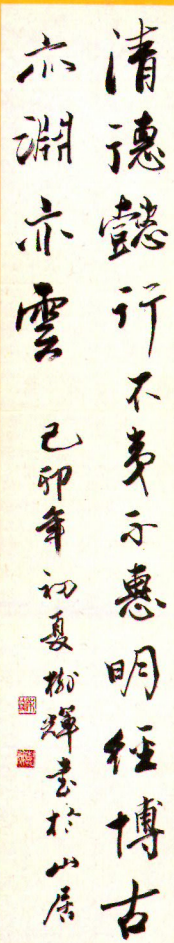 清德懿行不夷不惠明經博古
亦淵亦雲 己卯年初夏樹輝書於山居